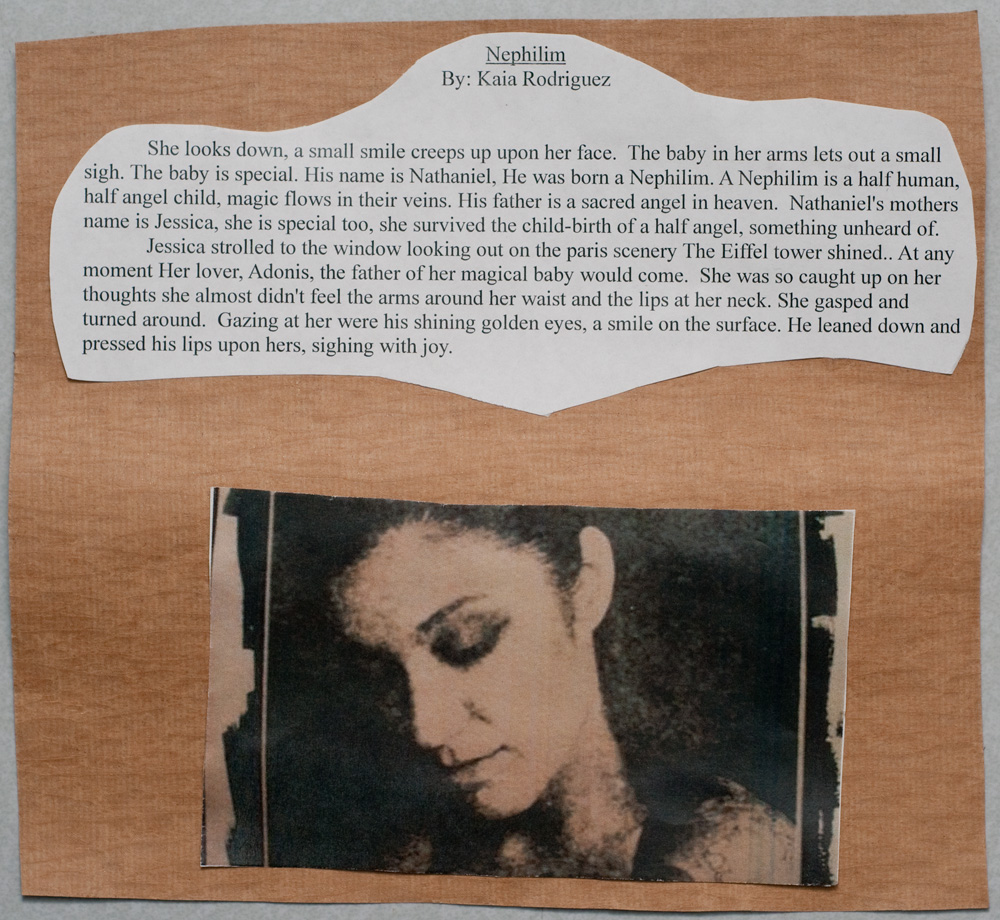 Nephilim
By: Kaia Rodriguez
She looks down, a small smile creeps up upon her face.  The baby in her arms lets out a small
sigh. The baby is special. His name is Nathaniel, He was born a Nephilim. A Nephilim is a half human,
half angel child, magic flows in their veins. His father is a sacred angel in heaven.  Nathaniel's mothers
name is Jessica, she is special too, she survived the child-birth of a half angel, something unheard of.
Jessica strolled to the window looking out on the paris scenery The Eiffel tower shined.. At any
moment Her lover, Adonis, the father of her magical baby would come.  She was so caught up on her
thoughts she almost didn't feel the arms around her waist and the lips at her neck. She gasped and
turned around.  Gazing at her were his shining golden eyes, a smile on the surface. He leaned down and
pressed his lips upon hers, sighing with joy.